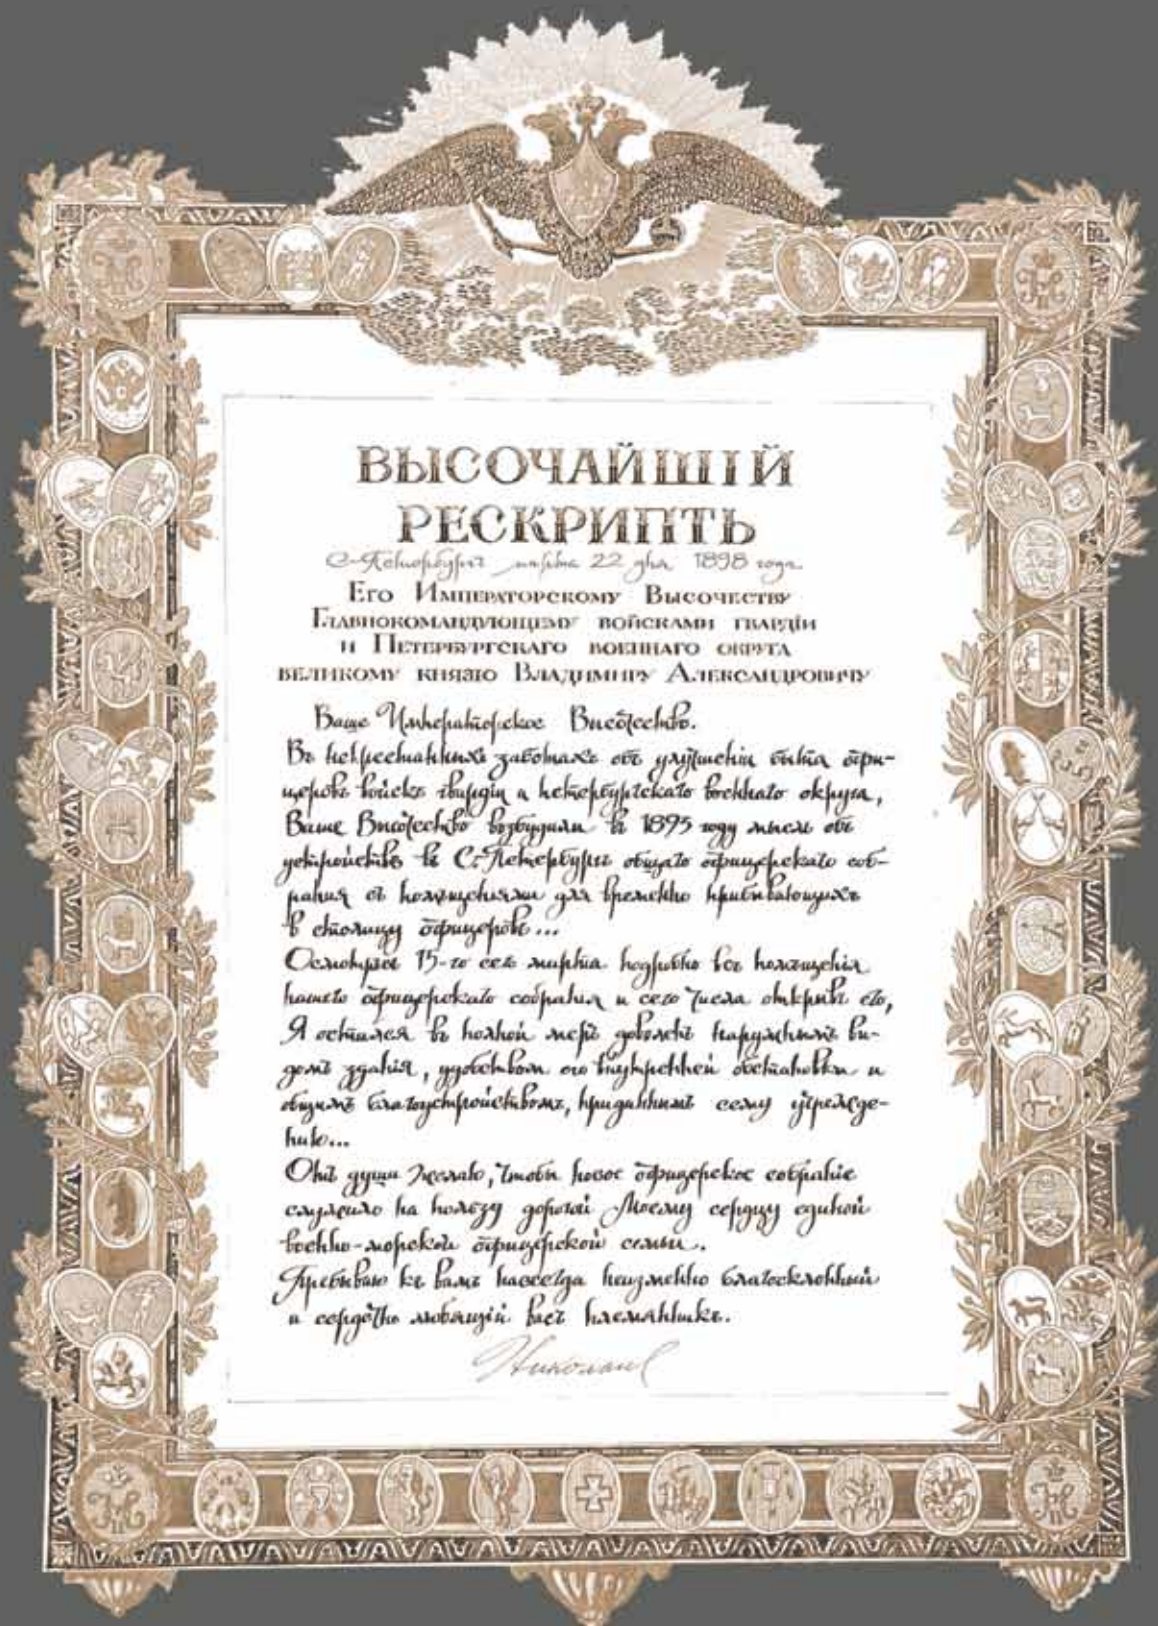 ВЫСОЧАЙШІЙ
РЕСКРИПТЬ
С-Петербургъ марта 22 дня 1898 года
Его Императорскому Высочеству
Главнокомандующему войсками гвардіи
и Петербургскаго военнаго округа
великому князю Владимиру Александровичу
Ваше Императорское Высочество.
Въ непрестанныхъ заботахъ объ улучшеніи быта офи-
церовъ войскъ гвардіи и петербургскаго военнаго округа,
Ваше Высочество возбудили въ 1895 году мысль объ
устройствѣ въ С.-Петербургѣ общаго офицерскаго соб-
ранія съ помещеніями для временно прибывающихъ
в столицу офицеровъ...
Осмотрѣвъ 15-го сего марта подробно все помѣщенія
нашего офицерскаго собранія и сего числа открывъ его,
Я остался въ полной мерѣ доволенъ наружнымъ ви-
домъ зданія, удобствомъ его внутренней обстановки и
общимъ благоустройствомъ, приданнымъ сему учрежде-
нию...
Отъ души желаю, чтобы новое офицерское собраніе
служило на пользу дорогой Моему сердцу единой
военно-морской офицерской семьи.
Пребываю къ вамъ навсегда неизменно благосклонный
и сердечно любящій васъ племянникъ.
Николай